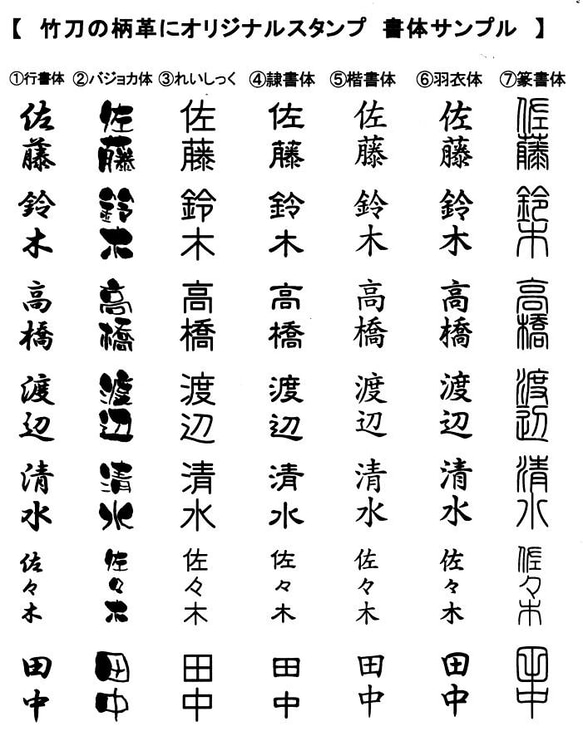 【 竹刀の柄革にオリジナルスタンプ 書体サンプル 】
①行書体 ②バジョカ体 ③れいしっく ④隷書体 ⑤楷書体 ⑥羽衣体 ⑦篆書体
佐藤 佐藤 佐藤 佐藤 佐藤 佐藤 佐藤
鈴木 鈴木 鈴木 鈴木 鈴木 鈴木 鈴木
高橋 高橋 高橋 高橋 高橋 高橋 高橋
渡辺 渡辺 渡辺 渡辺 渡辺 渡辺 渡辺
清水 清水 清水 清水 清水 清水 清水
佐々木 佐々木 佐々木 佐々木 佐々木 佐々木 佐々木
田中 田中 田中 田中 田中 田中 田中